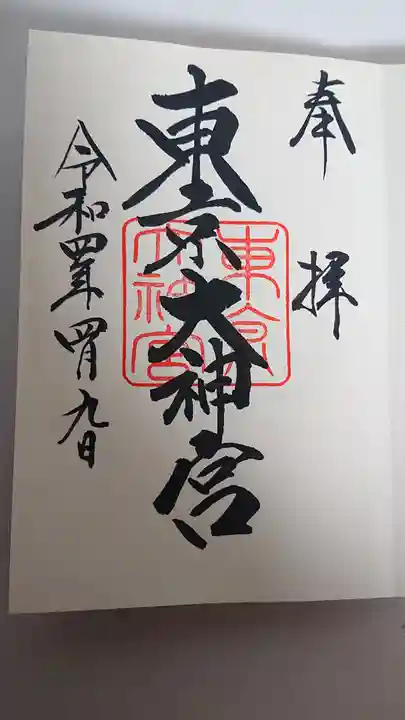 奉拝
東京大神宮
東京
大神宮
令和四年四月九日